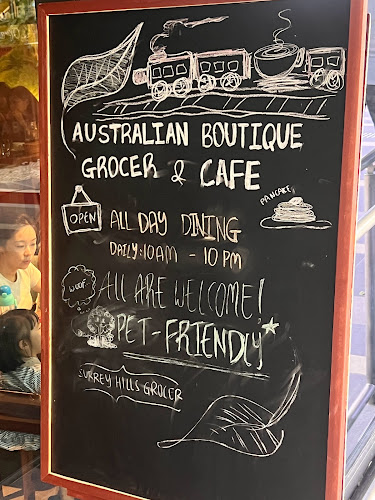 AUSTRALIAN BOUTIQUE
GROCER & CAFE
OPEN
ALL DAY DINING
DAILY: 10AM - 10PM
PANCAKE
WOOF
ALL ARE WELCOME!
PET-FRIENDLY*
SURREY HILLS GROCER